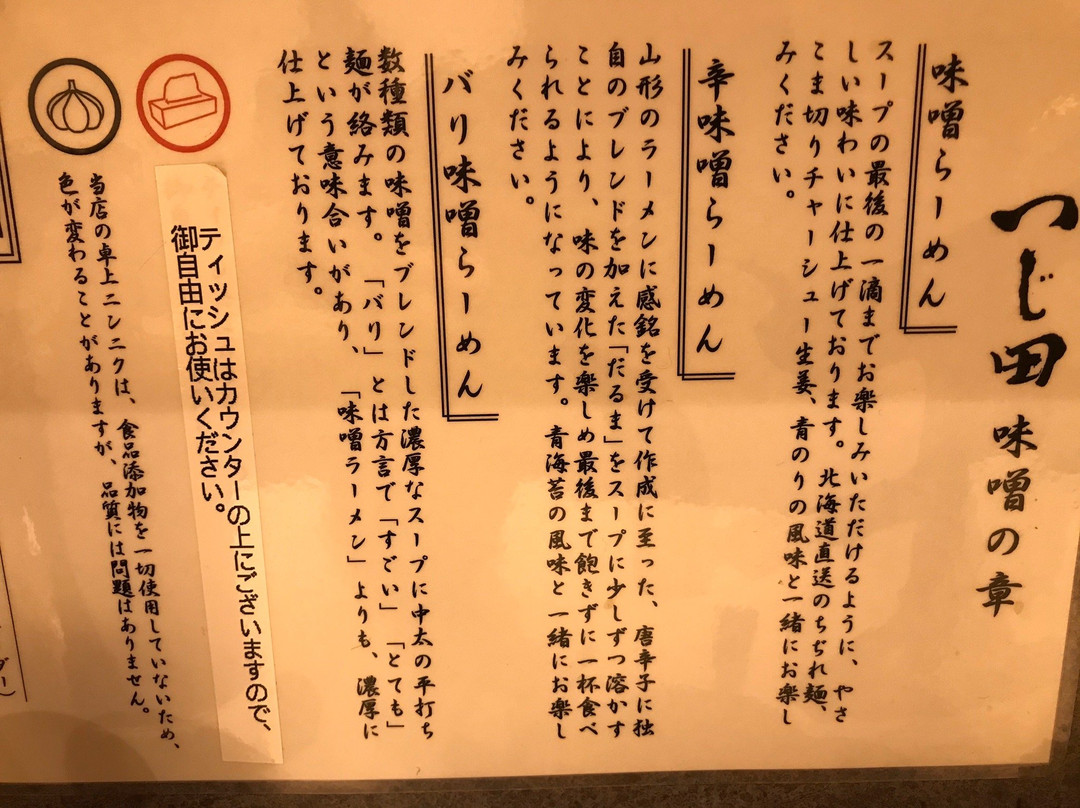 つじ田 味噌の章
味噌らーめん
スープの最後の一滴までお楽しみいただけるように、やさ
しい味わいに仕上げております。北海道直送のちぢれ麺、
こま切りチャーシュー生姜、青のりの風味と一緒にお楽し
みください。
辛味噌らーめん
山形のラーメンに感銘を受けて作成に至った、唐辛子に独
自のブレンドを加えた「だるま」をスープに少しずつ溶かす
ことにより、味の変化を楽しめ最後まで飽きずに一杯食べ
られるようになっています。青海苔の風味と一緒にお楽し
みください。
バリ味噌らーめん
数種類の味噌をブレンドした濃厚なスープに中太の平打ち
麺が絡みます。「バリ」とは方言で「すごい」「とても」
という意味合いがあり、「味噌ラーメン」よりも、濃厚に
仕上げております。
ティッシュはカウンターの上にございますので、
御自由にお使いください。
当店の卓上ニンニクは、食品添加物を一切使用していないため、
色が変わることがありますが、品質には問題はありません。